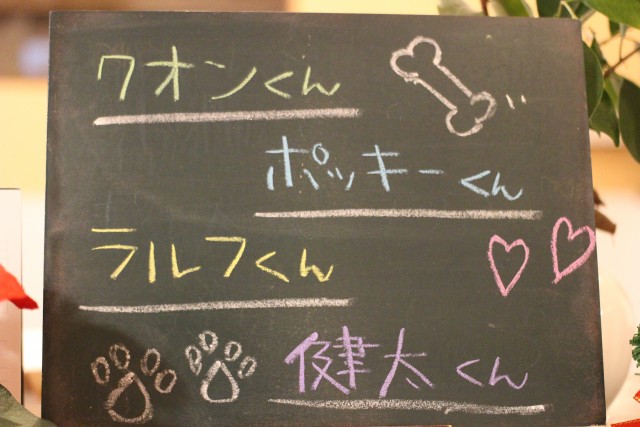 クオンくん
ポッキーくん
ラルフくん
健太くん